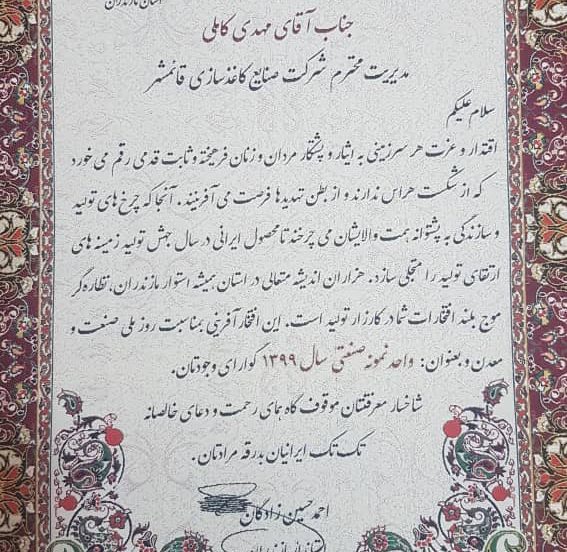 استان مازندران
جناب آقای مهدی کاملی
مدیریت محترم شرکت صنایع کاغذسازی قائمشهر
سلام علیکم
اقتدار و عزت هر سرزمینی به ایثار و پشتکار مردان و زنان فرهیخته و ثابت قدمی رقم می خورد
که از شکست هراس ندارند و از بطن تهدیدها فرصت می آفرینند، آنجا که چرخ های تولید
و سازندگی به پشتوانه همت والایشان می چرخند تا محصول ایرانی در سال جهش تولید زمینه های
ارتقای تولید را متجلی سازد. هزاران اندیشه متعالی در استان همیشه استوار مازندران، نظاره گر
موج بلند افتخارات شما در کارزار تولید است. این افتخار آفرینی بمناسبت روز ملی صنعت و
معدن و بعنوان: واحد نمونه صنعتی سال ۱۳۹۹ گوارای وجودتان.
شاخسار معرفتتان موقوف گاه همای رحمت و دعای خالصانه
تک تک ایرانیان بدرقه مرادتان.
احمد حسین زادگان
استاندار مازندران